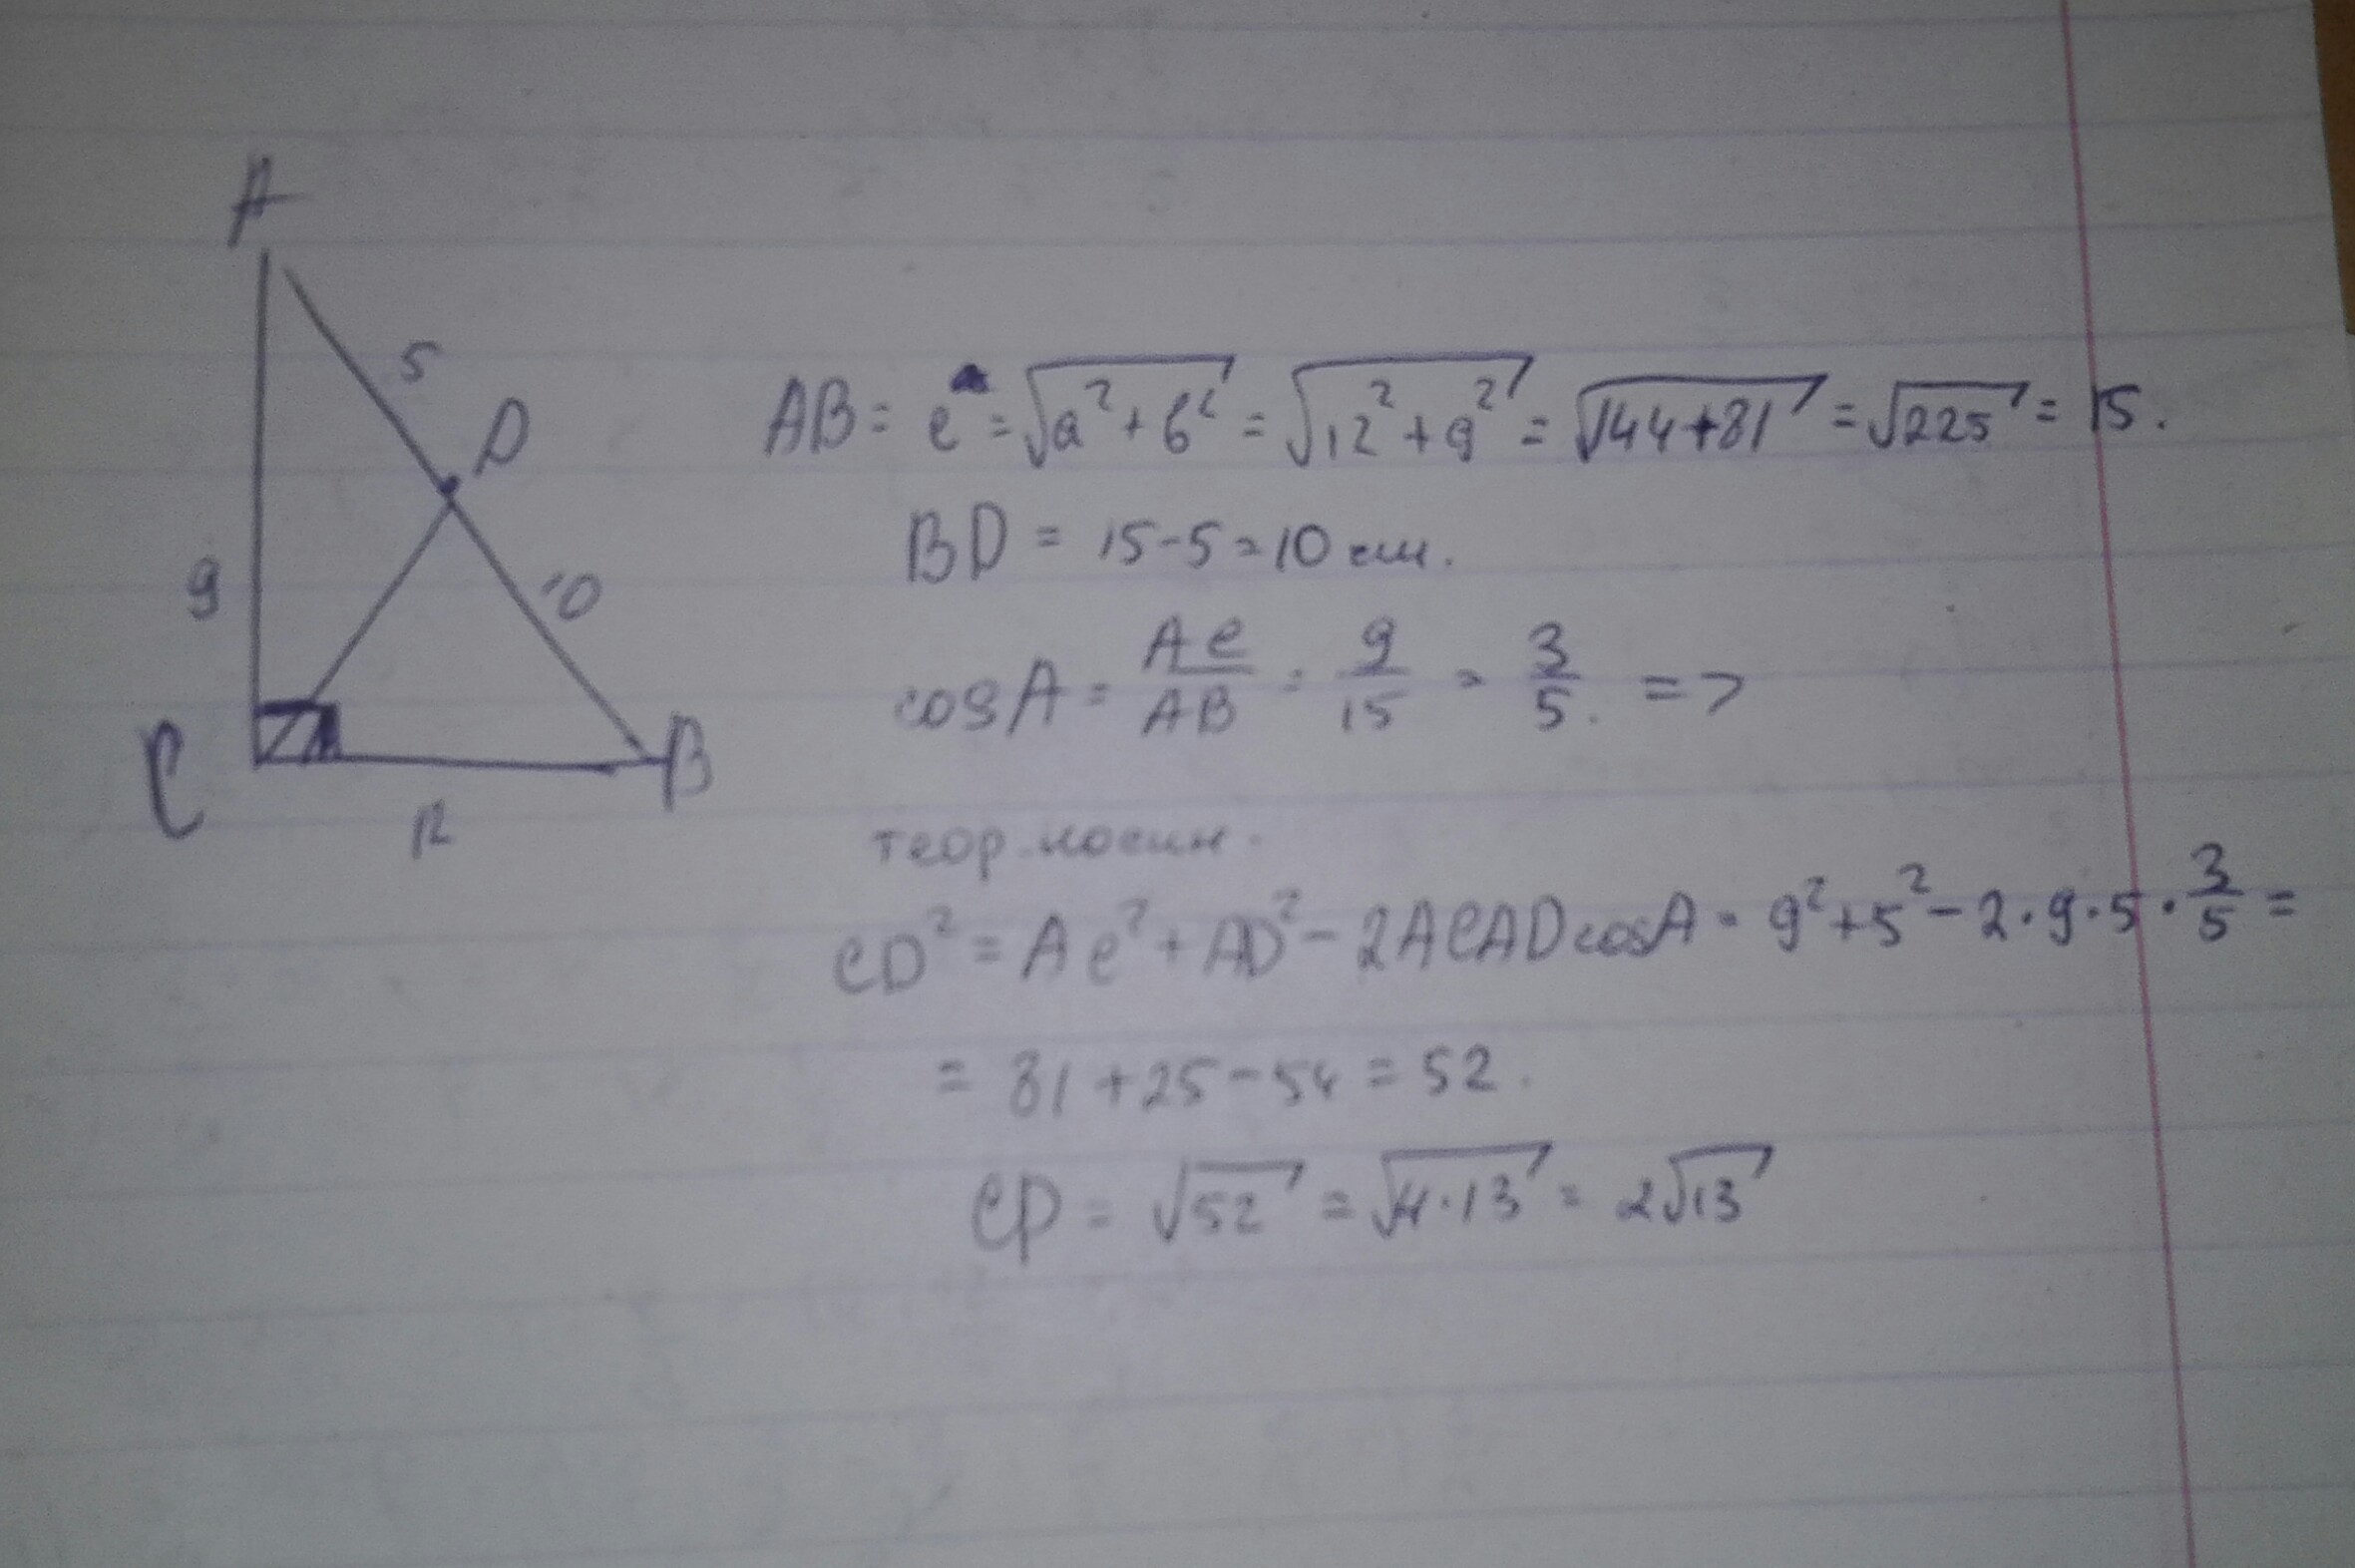 A
5
D
9
10
C
B
12
AB = c = √a²+b² = √12²+9² = √144+81 = √225 = 15.
BD = 15-5=10 см.
cosA = AC/AB = 9/15 = 3/5. =>
теор. косин.
CD² = AC²+AD²-2ACADcosA = 9²+5²-2·9·5·3/5 =
= 81+25-54=52.
CD = √52 = √4·13 = 2√13